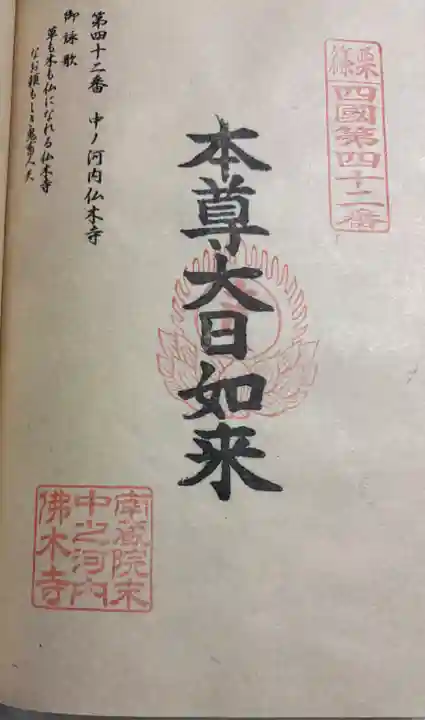 篠栗
四國第四十二番
本尊大日如来
第四十二番 中ノ河内仏木寺
御詠歌
草も木も仏になれる仏木寺
なお頼もしき鬼畜人天
南蔵院末
中之河内
佛木寺